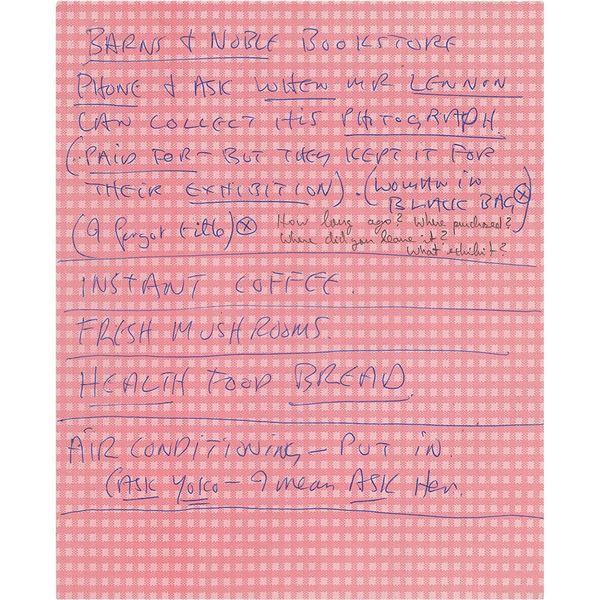 BARNS & NOBLE BOOKSTORE
PHONE & ASK WHEN MR LENNON
CAN COLLECT HIS PHOTOGRAPH.
(PAID FOR - BUT THEY KEPT IT FOR
THEIR EXHIBITION). (WOMAN IN
BLACK BAG ⊗)
(I forgot title) ⊗ How long ago? Where purchased?
Where did you leave it?
What exhibit?
INSTANT COFFEE.
FRESH MUSHROOMS.
HEALTH FOOD BREAD.
AIR CONDITIONING - PUT IN.
(ASK YOKO - I mean ASK Her.